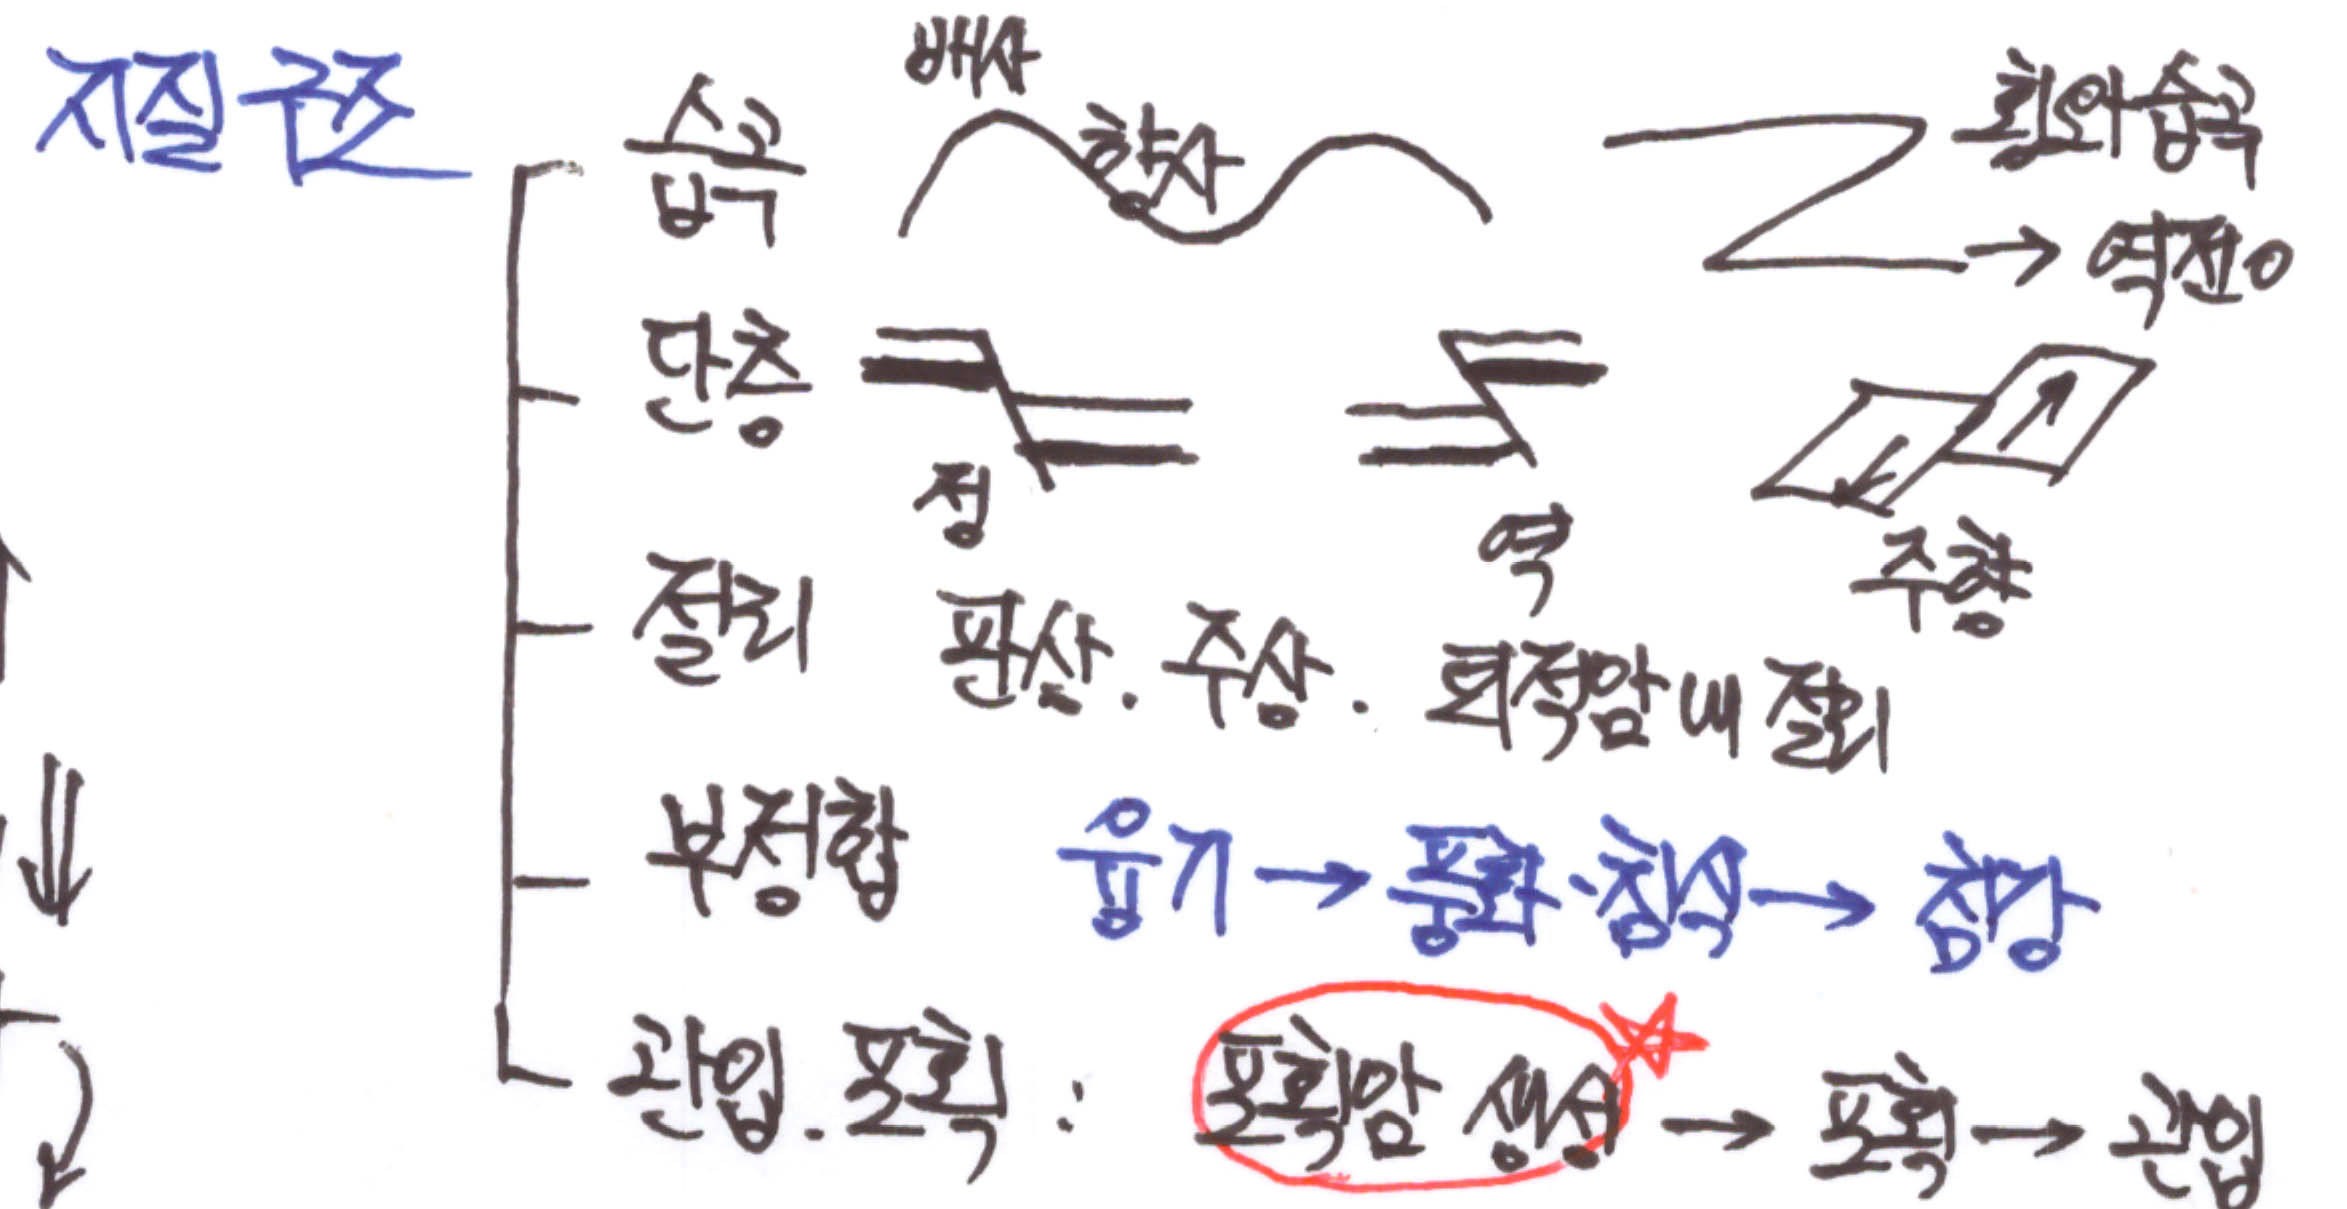 지질구조
습곡 배사 향사 횡와습곡
→ 역전 O
단층 정 역 주향
절리 판상 . 주상 . 퇴적암 내 절리
부정합 융기 → 풍화·침식 → 침강
관입 . 포획 : 포획암 생성 → 포획 → 관입